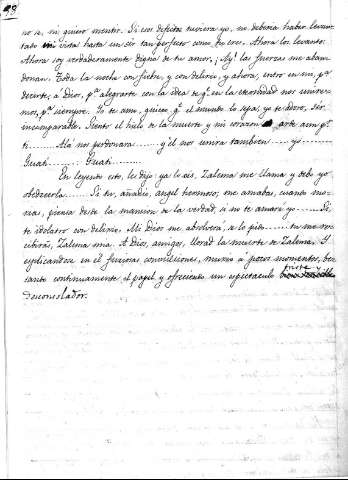 98
no se, ni quiero mentir. Si esos defectos tuviera yo, no deberia haber levan-
tado mi vista hasta un ser tan perfecto como te cree. Ahora los levanto.
Ahora soy verdaderamente digna de tu amor, ¡Ay! las fuerzas me aban
donan. Toda la noche con fiebre, y con delirio, y ahora, entro en mi, pª
decirte, a Dios, pª alegrarte con la idea de qe en la eternidad nos unire-
mos, pª siempre. Yo te amo, quiero qe el mundo lo sepa, yo te adoro, Ser
incomparable. Siento el hielo de la muerte y mi corazon arde aun pr
ti...... Ala nos perdonara...... y él nos unira tambien...... yo......
Guati........ Guati......
En leyendo esto, les dijo: ya lo veis, Zalema me llama y debo yo
obedecerla..... Si tu, añadio, angel hermoso, me amabas, cuanto mo-
rias, piensa desde la mansion de la verdad si no te amare yo..... Si,
te idolatro con delirio. Mi Dios me absolvera, a lo pido..... tu me re-
cibiras, Zalema mia. A Dios, amigos, llorad la muerte de Zalema. Y
esplicandose en él furiosas convulsiones, murio a pocos momentos, be-
sando continuamente el papel y ofreciendo un espectaculo triste y
desconsolador.